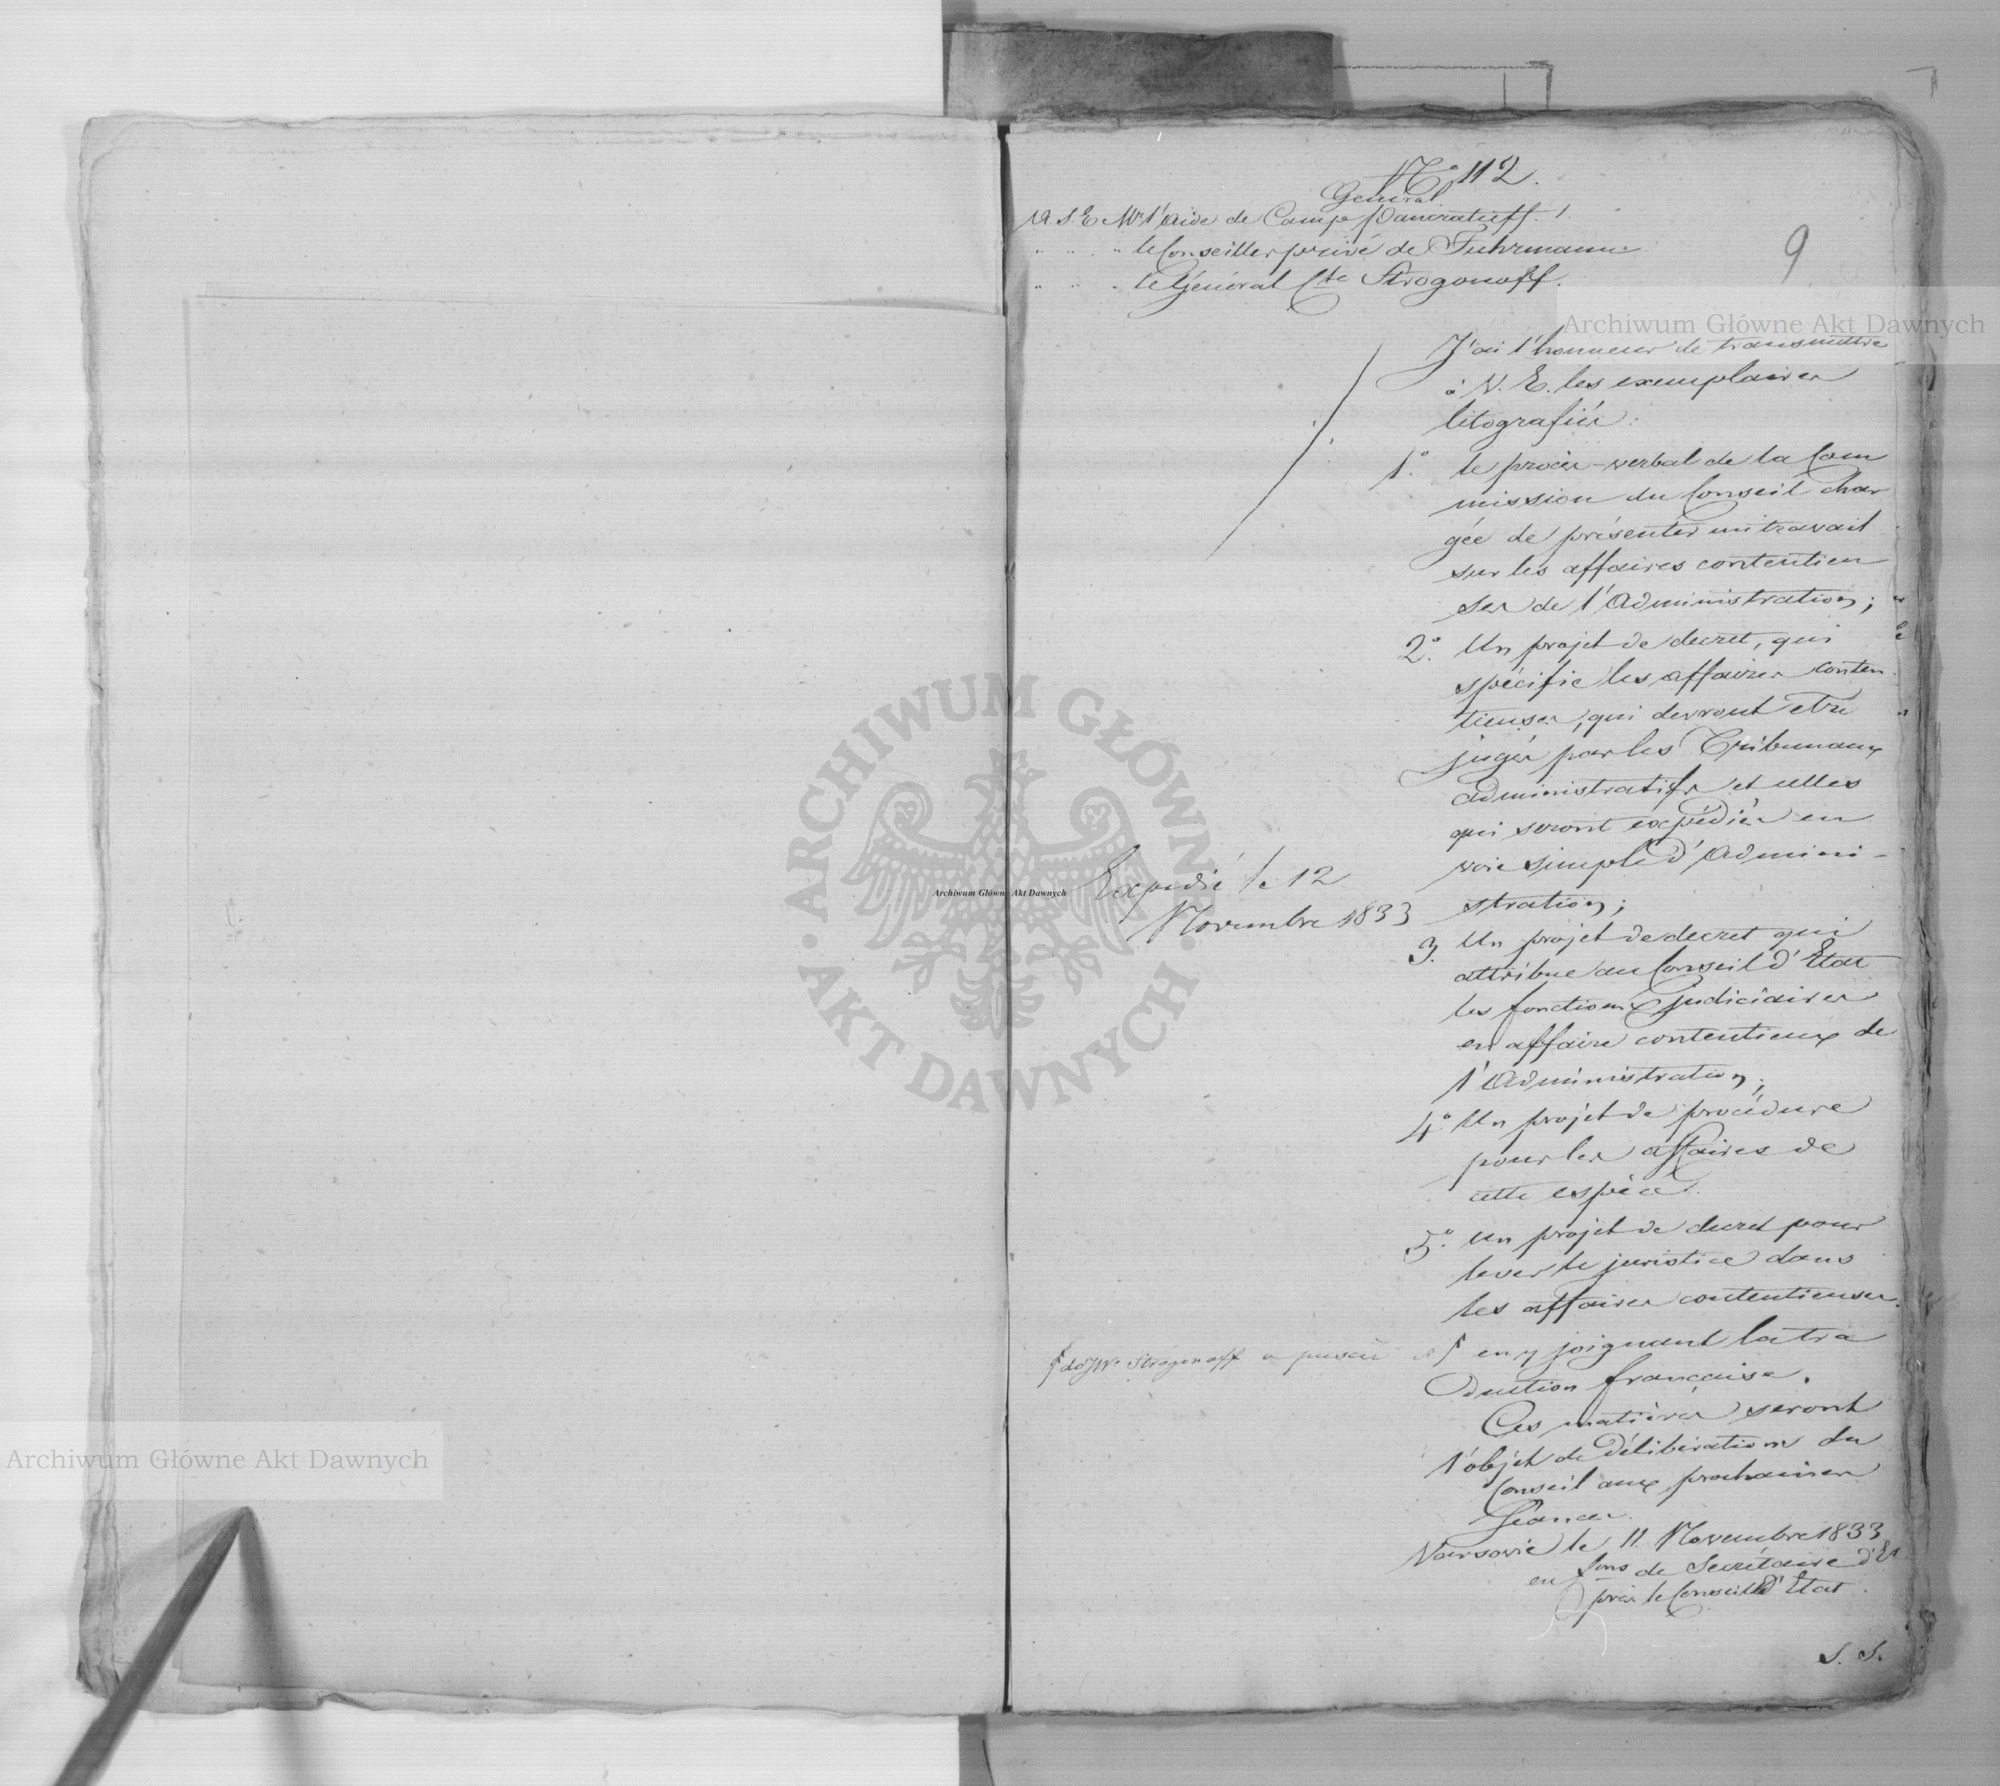 No 112.
9
Général
A S. E. Mr l'Aide de Camp Pancratieff.
" " " le Conseiller privé de Fuhrmann
" " " le Général Cte Strogonoff.
J'ai l'honneur de transmettre
à V. E. les exemplaires
litografiés:
1o. le procès-verbal de la Com
mission du Conseil char
gée de présenter un travail
sur les affaires contentieu
ses de l'Administration;
2o. Un projet de decret, qui
spécifie les affaires conten
tieuses, qui devront etre
jugés par les Tribunaux
administratifs et celles
qui seront expédiés en
voie simple d'Admini-
stration;
Expedié le 12
Novembre 1833
3. Un projet de decret qui
attribue au Conseil d'Etat
les fonctions judiciaires
en affaire contentieux de
l'Administration;
4o. Un projet de procédure
pour les affaires de
cette espèce.
5o. Un projet de decret pour
lever le juristice dans
les affaires contentieuses.
Strogonoff
en y joignant la tra
duction française.
Ces matières seront
l'objet de délibérations du
Conseil aux prochaines
Séances.
Varsovie le 11 Novembre 1833
en fons de Secrétaire d'Et
près le Conseil d'Etat.
S. S.
Archiwum Główne Akt Dawnych
Archiwum Główne Akt Dawnych
Archiwum Główne Akt Dawnych
ARCHIWUM GŁÓWNE
• AKT DAWNYCH •